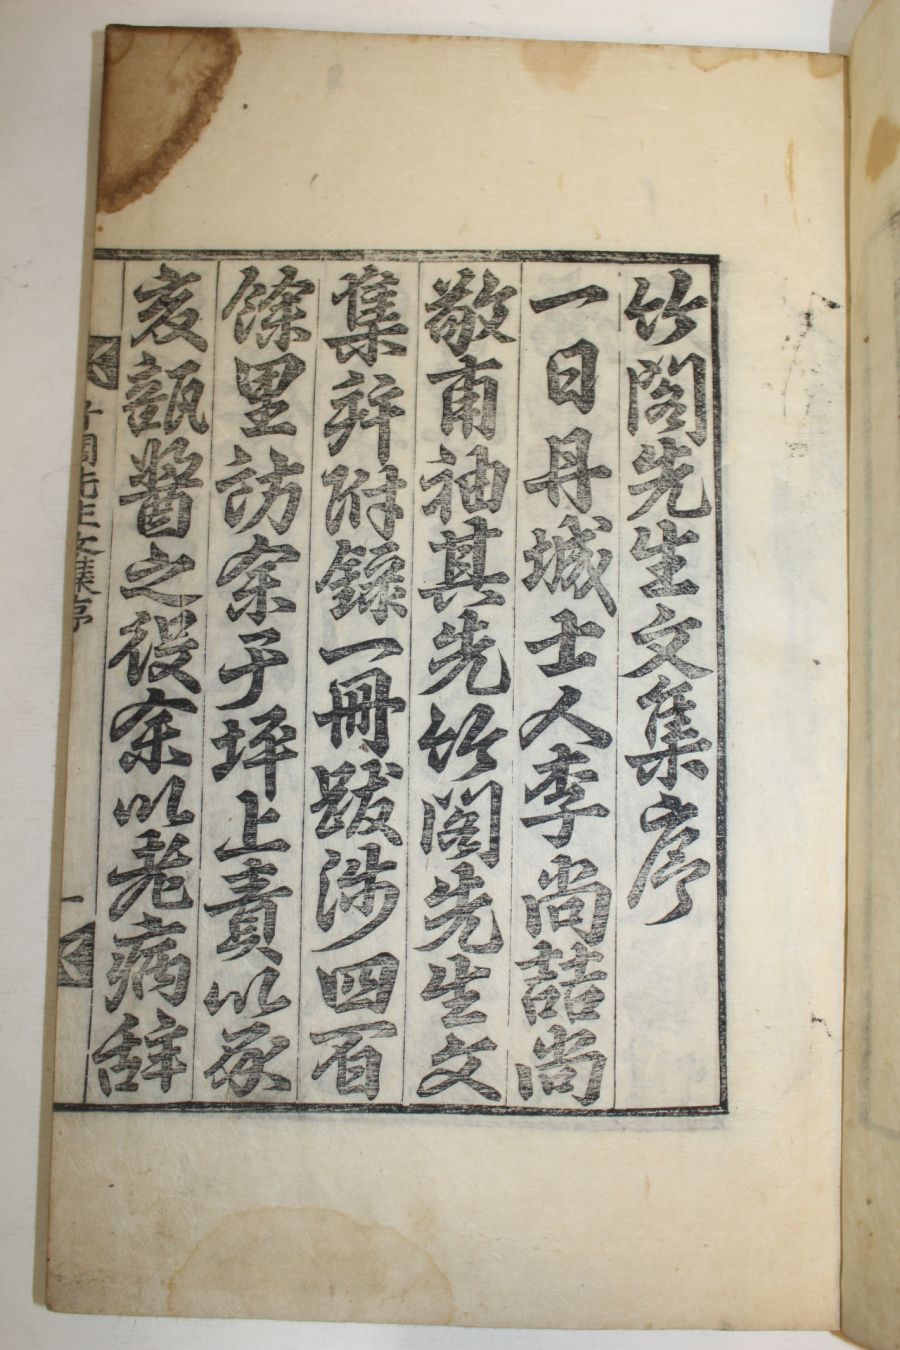 竹閣先生文集序
一日丹城士人李尚喆尚
敬甫袖其先竹閣先生文
集并附錄一冊跋涉四百
餘里訪余于坪上責以豕
亥瓿醬之役余以老病辭
竹閣先生文集序
一